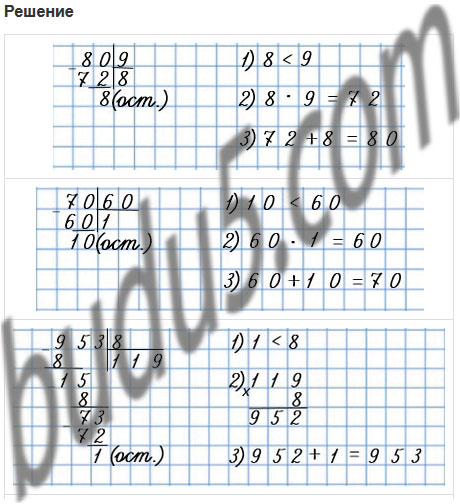 Решение
80|9
- 72|8
8(ост.)
1) 8 < 9
2) 8 · 9 = 72
3) 72 + 8 = 80
70|60
- 60|1
10(ост.)
1) 10 < 60
2) 60 · 1 = 60
3) 60 + 10 = 70
- 953|8
8 |119
- 15
8
- 73
72
1 (ост.)
1) 1 < 8
2) 119
× 8
952
3) 952 + 1 = 953
budu5.com